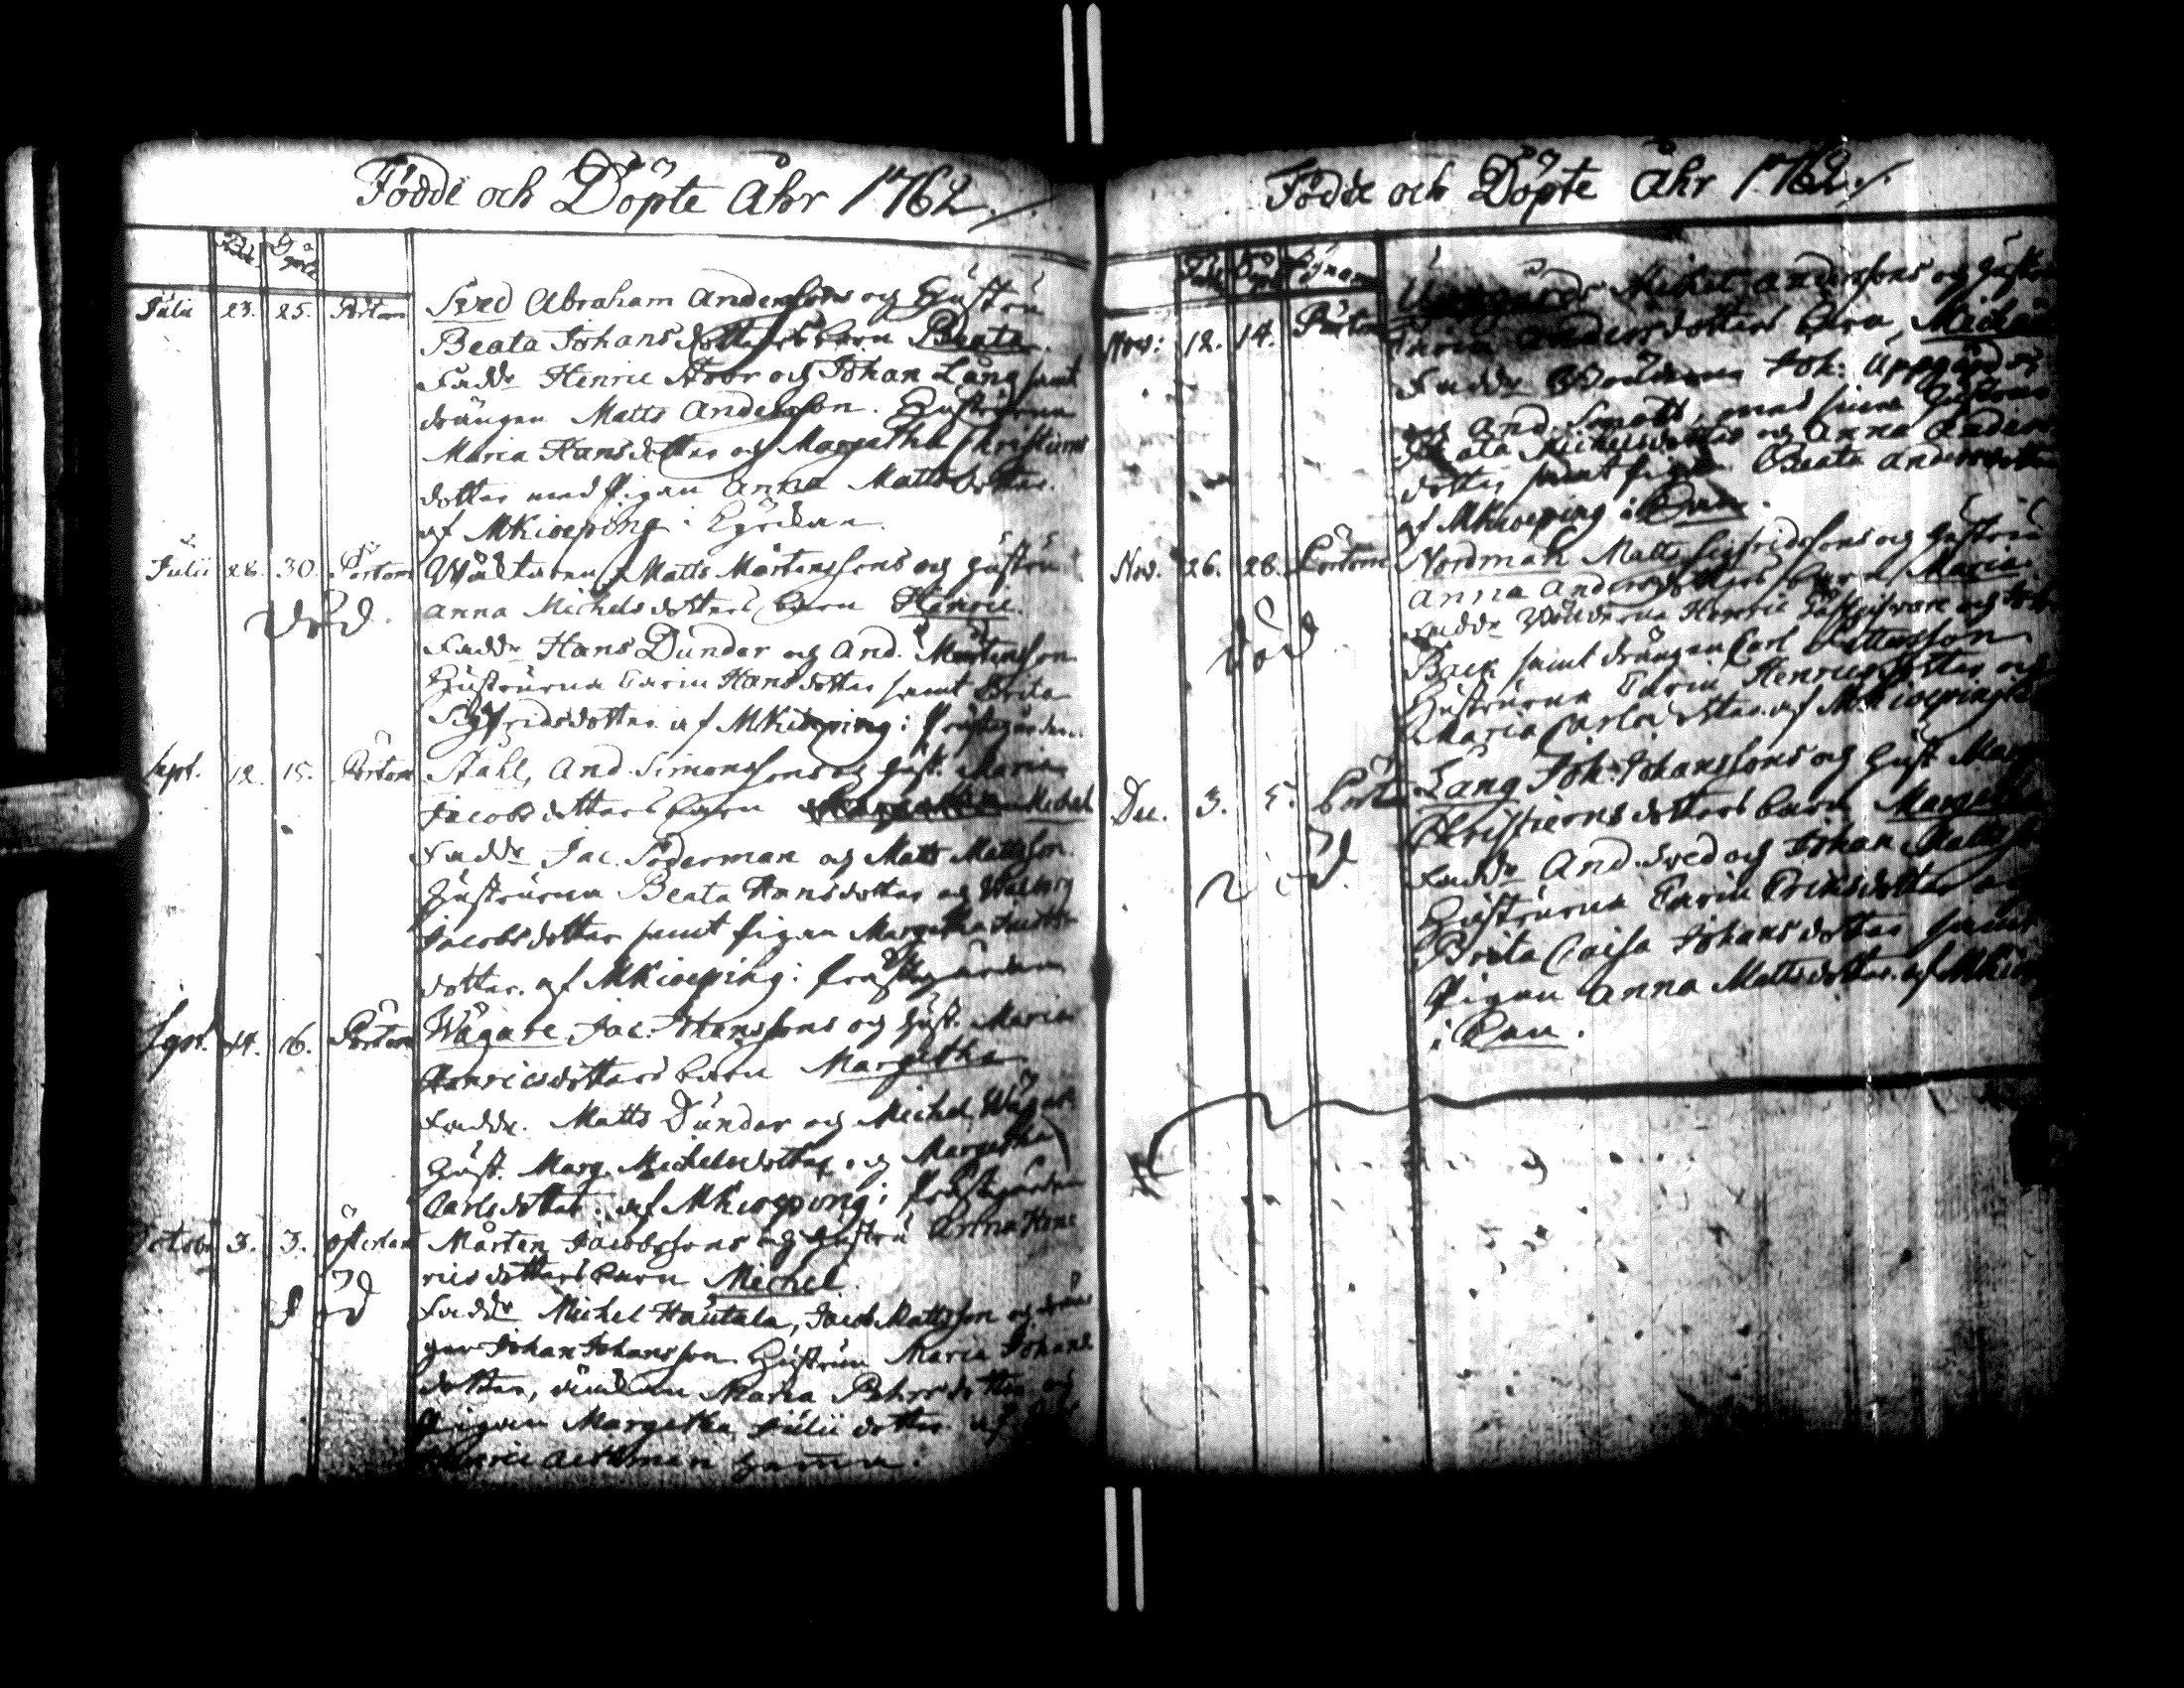 Födde och Döpte Åhr 1762./.
Födde Döpte
Julii 23. 25. Pörtom Sved Abraham Anderssons og Hustru
Beata Johansdotters barn Beata.
Fadd. Henric Stoor og Johan Lång samt
drängen Matts Andersson. Hustrurna
Maria Hansdotter og Margetha Christierns
dotter med Pigan Anna Mattsdotter.
af MKioeping i Kyrckan.
Julii 28. 30. Pörtom Matts Mårtenssons og hustru
död. Anna Michelsdotters barn Henric.
Fadd. Hans Dunder og And. Mårtensson
Hustrurna Carin Hansdotter samt Brita
Sigfridsdotter af MKioeping i Prästgården.
Sept. 12. 15. Pörtom Ståhl, And. Simonssons og Hust. Maria
Jacobsdotters barn Michel
Fadd. Jac. Söderman og Matts Mattsson.
Hustrurna Beata Hansdotter og
Jacobsdotter samt Pigan Margetha
dotter. af MKioeping i Prästgården
Sept. 14. 16. Pörtom Wägare, Jac. Johanssons og Hust. Maria
Henricsdotters barn Margetha
Fadd. Matts Dunder og Michel Wägar
Hust. Marg. Michelsdotter og Margetha
Carlsdotter. af MKioeping i Prästgården
Octob. 3. 3. Österland Mårten Jacobssons og Hustru Anna Hen
död ricsdotters barn Michel.
Fadd. Michel Hautala, Jacob Mattsson og drän
gen Johan Johansson Hustrun Maria Johans
dotter, Maria Pehrsdotter og
Pigan Margetha Julii dotter af
hemma.
Födde och Döpte Åhr 1762./.
Födde Döpte Bynamn
Nov: 12. 14. Pörtom Uppgårds Michel Anderssons og Hustru
Carin Andersdotters barn, Michel
Fadd. Bönderna Joh: Uppgård
og And. Smatts, med sina Hustrur
Beata Michelsdotter og Anna Anders
dotter samt pigan Beata Andersdotter
af MKioeping i Byn.
Nov. 26. 28. Pörtom Nordmak Matts Sigfridssons og Hustru
Anna Andersdotters barn Maria.
död. Fadd. Bönderna Henric og
Back samt drängen Carl
Hustrurna Carin Henricsdotter og
Maria Carlsdotter. af MKioeping
Dec. 3. 5. Pört. Lång Joh: Johanssons og Hust Mar
Christiernsdotters barn Margetha
död. Fadd. And. Sved og Johan
Hustrurna Carin Ericsdotter
Brita Caisa Johansdotter samt
Pigan Anna Mattsdotter. af MKioe
i Byn.